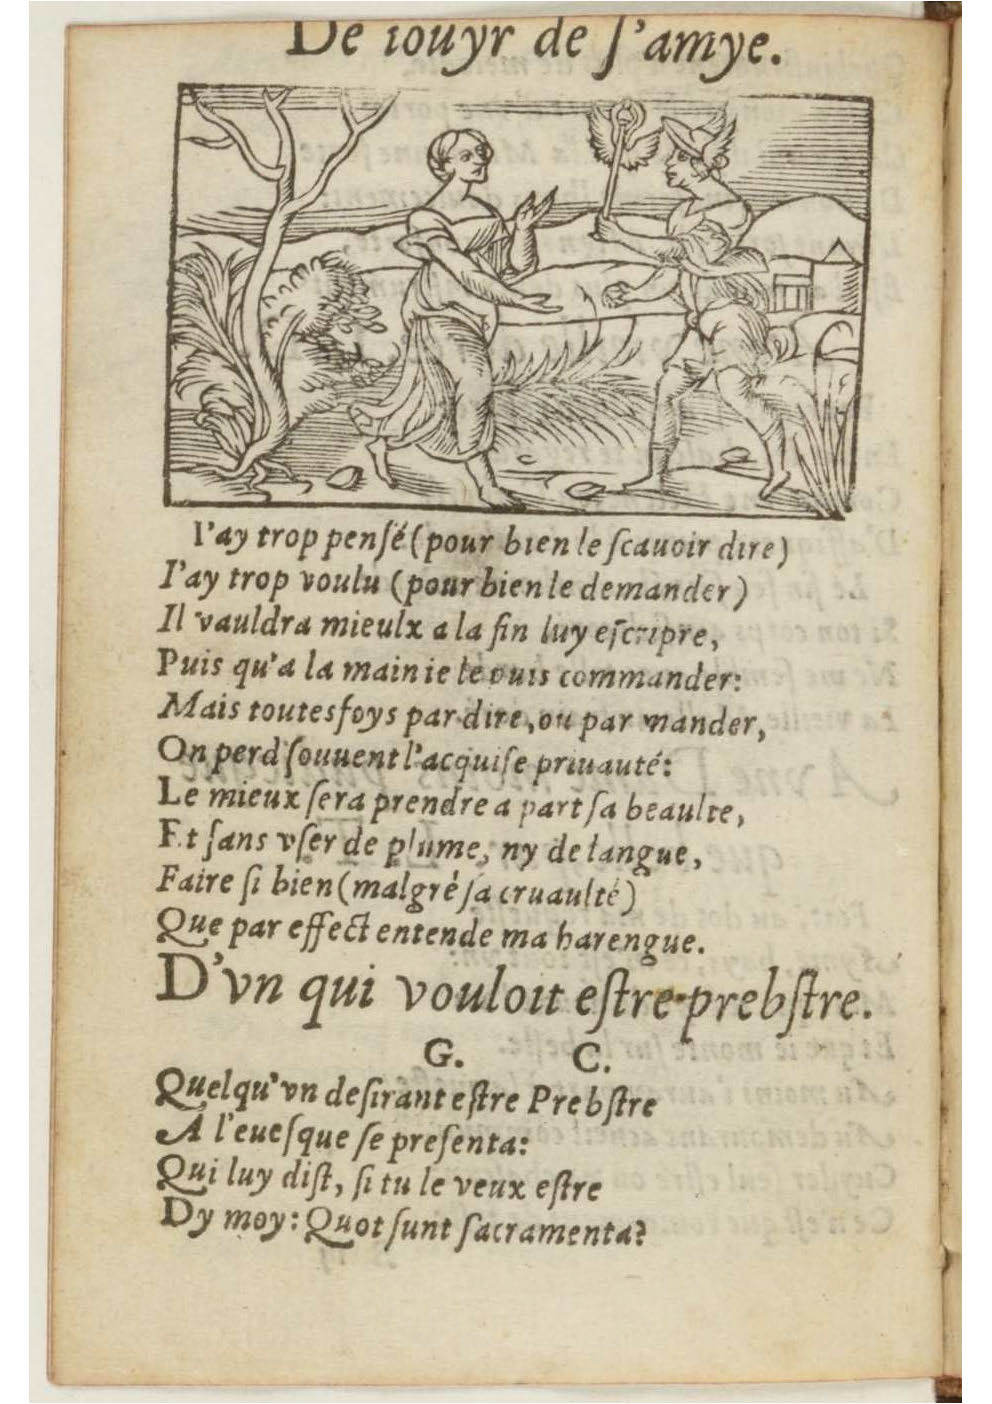 De iouyr de s'amye.
I'ay trop pensé (pour bien le scauoir dire)
I'ay trop voulu (pour bien le demander)
Il vauldra mieulx a la fin luy escripre,
Puis qu'a la main ie le puis commander:
Mais toutesfoys par dire, ou par mander,
On perd souuent l'acquise priuauté:
Le mieux sera prendre a part sa beaulte,
Et sans vser de plume, ny de langue,
Faire si bien (malgré sa cruaulté)
Que par effect entende ma harengue.
D'vn qui vouloit estre prebstre.
G. C.
Quelqu'vn desirant estre Prebstre
A l'euesque se presenta:
Qui luy dist, si tu le veux estre
Dy moy: Quot sunt sacramenta?